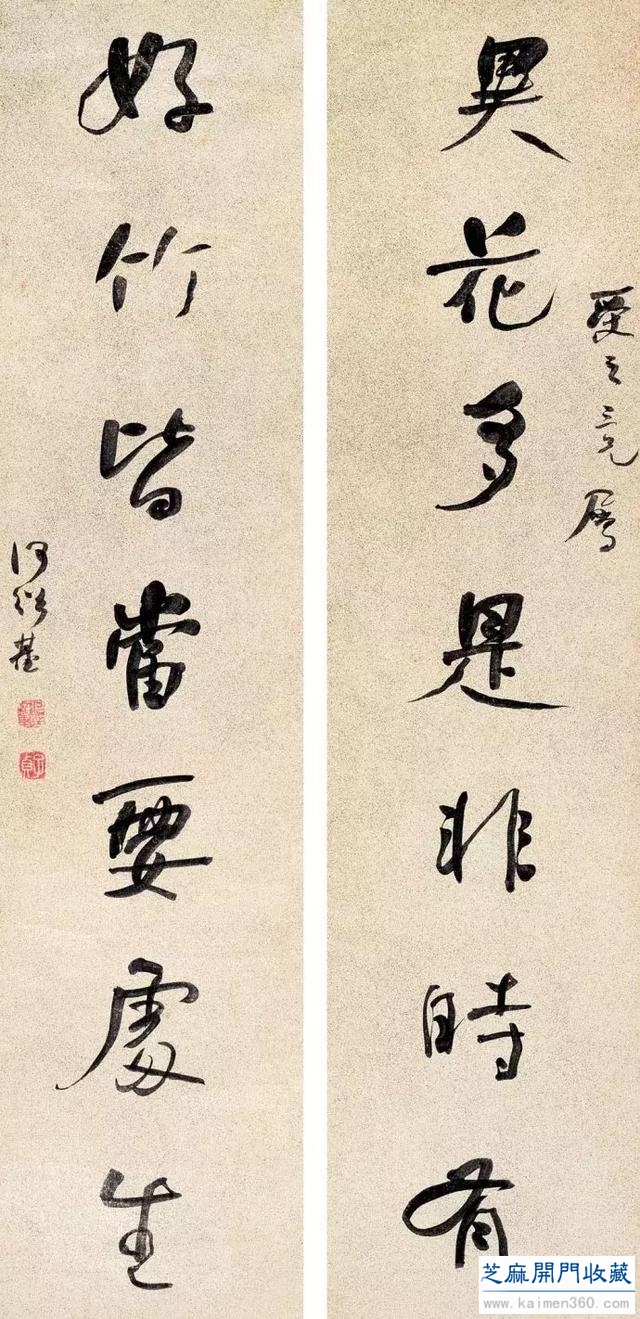 受之三兄屬
異花多是非時有
好竹皆當要處生
何紹基
子貞
芝麻開門收藏
www.kaimen360.com